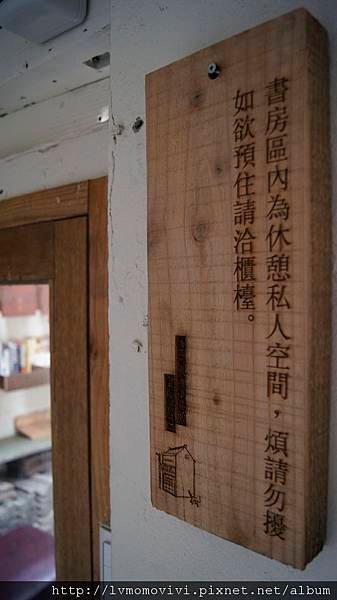 書房區內為休憩私人空間，煩請勿擾
如欲預住請洽櫃檯。
http://lvmomovivi.pixnet.net/album